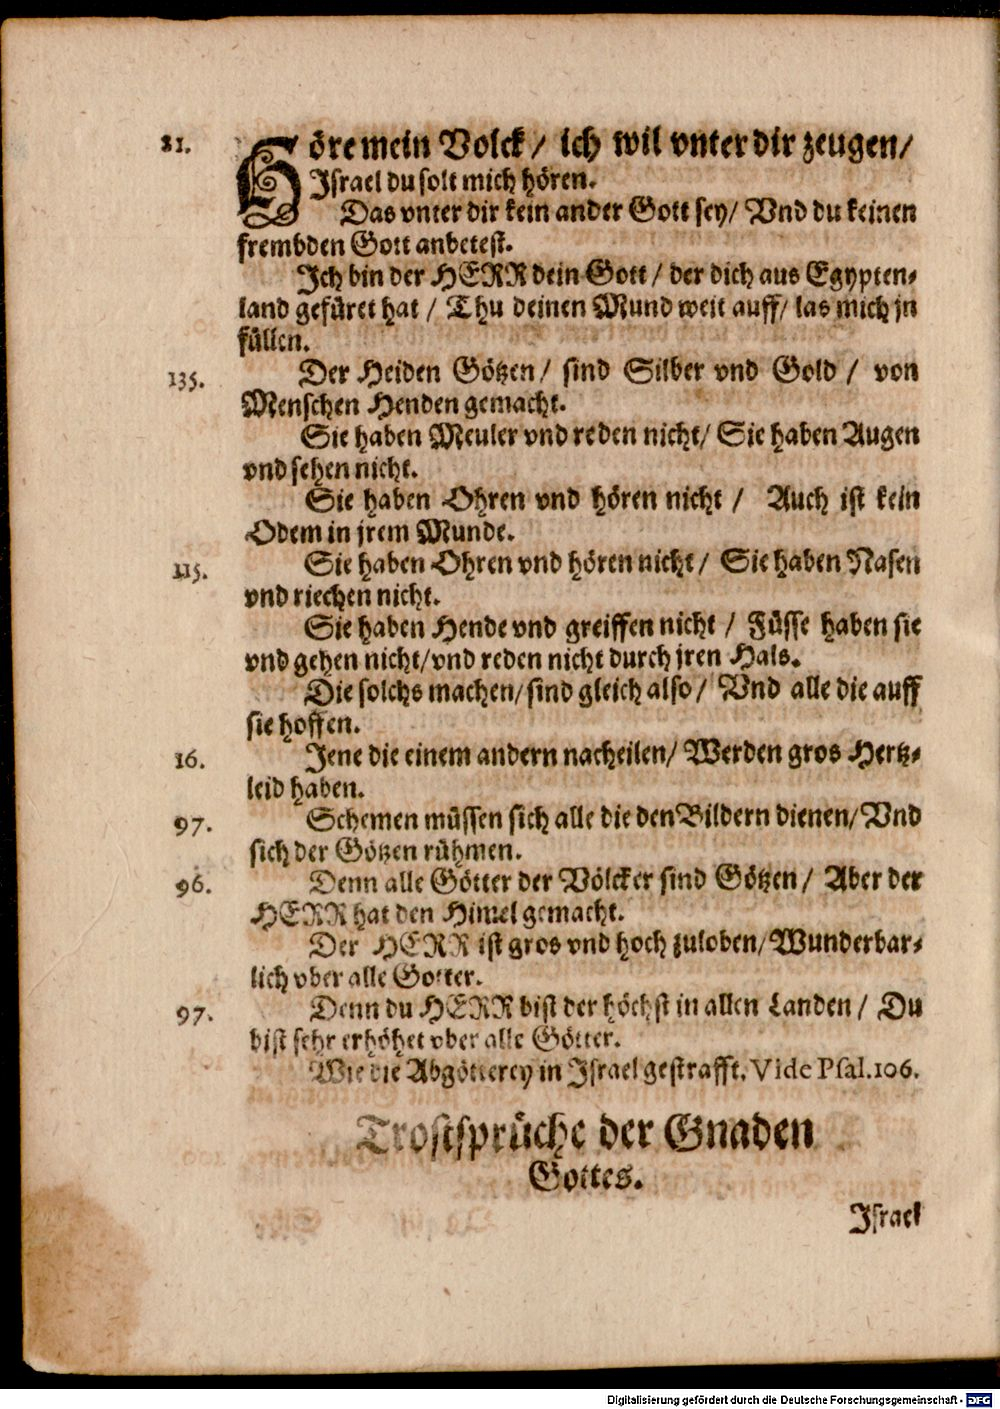 81. Höre mein Volck / ich wil vnter dir zeugen /
Israel du solt mich hören.
Das vnter dir kein ander Gott sey / Vnd du keinen
frembden Gott anbetest.
Ich bin der HERR dein Gott / der dich aus Egypten⸗
land gefüret hat / Thu deinen Mund weit auff / las mich jn
füllen.
135. Der Heiden Götzen / sind Silber vnd Gold / von
Menschen Henden gemacht.
Sie haben Meuler vnd reden nicht / Sie haben Augen
vnd sehen nicht.
Sie haben Ohren vnd hören nicht / Auch ist kein
Odem in jrem Munde.
115. Sie haben Ohren vnd hören nicht / Sie haben Nasen
vnd riechen nicht.
Sie haben Hende vnd greiffen nicht / Füsse haben sie
vnd gehen nicht / vnd reden nicht durch jren Hals.
Die solchs machen / sind gleich also / Vnd alle die auff
sie hoffen.
16. Jene die einem andern nacheilen / Werden gros Hertz⸗
leid haben.
97. Schemen müssen sich alle die den Bildern dienen / Vnd
sich der Götzen rühmen.
96. Denn alle Götter der Völcker sind Götzen / Aber der
HERR hat den Himel gemacht.
Der HERR ist gros vnd hoch zuloben / Wunderbar⸗
lich vber alle Gotter.
97. Denn du HERR bist der höchst in allen Landen / Du
bist sehr erhöhet vber alle Götter.
Wie die Abgötterey in Israel gestrafft. Vide Psal. 106.
Trostsprüche der Gnaden
Gottes.
Israel
Digitalisierung gefördert durch die Deutsche Forschungsgemeinschaft - DFG